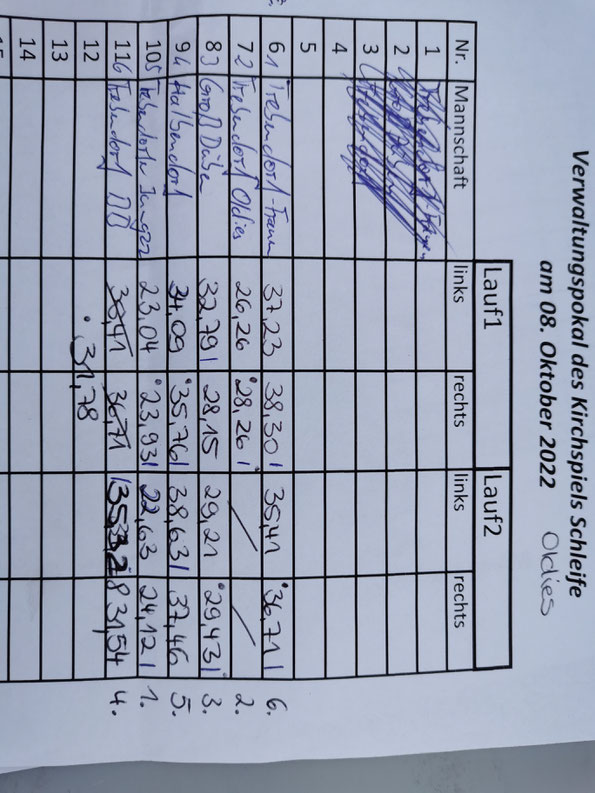 Verwaltungspokal des Kirchspiels Schleife
am 08. Oktober 2022 Oldies
Lauf1 Lauf2
Nr. Mannschaft links rechts links rechts
1
2
3
4
5
6 1 Trebendorf-Frauen 37,23 38,30 35,41 36,71 6.
7 2 Trebendorf Oldies 26,26 28,26 2.
8 3 Groß Düben 32,79 28,15 29,21 29,43 3.
9 4 Halbendorf 34,09 35,76 38,63 37,46 5.
10 5 Trebendorfer Jungen 23,04 23,93 22,63 24,12 1.
11 6 Trebendorf 31,54 4.
12 31,78
13
14
15